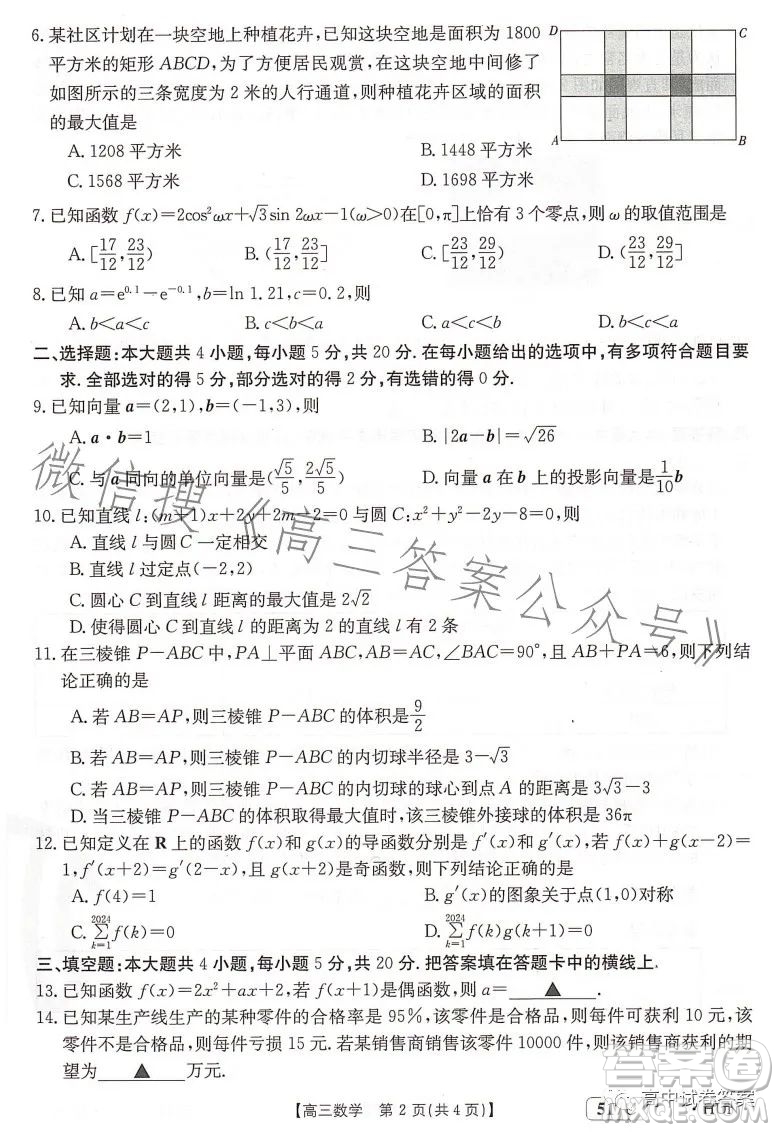 6.某社区计划在一块空地上种植花卉,已知这块空地是面积为1800
平方米的矩形ABCD,为了方便居民观赏,在这块空地中间修了
如图所示的三条宽度为2米的人行通道,则种植花卉区域的面积
的最大值是
D C
A B
A.1208平方米 B.1448平方米
C.1568平方米 D.1698平方米
7.已知函数f(x)=2cos²ωx+√3sin 2ωx-1(ω>0)在[0,π]上恰有3个零点,则ω的取值范围是
A.[17/12,23/12) B.(17/12,23/12] C.[23/12,29/12) D.(23/12,29/12]
8.已知a=e^0.1-e^-0.1,b=ln 1.21,c=0.2,则
A.b<a<c B.c<b<a C.a<c<b D.b<c<a
二、选择题:本大题共4小题,每小题5分,共20分.在每小题给出的选项中,有多项符合题目要
求.全部选对的得5分,部分选对的得2分,有选错的得0分.
9.已知向量a=(2,1),b=(-1,3),则
A.a·b=1 B.|2a-b|=√26
C.与a同向的单位向量是(√5/5,2√5/5) D.向量a在b上的投影向量是1/10 b
10.已知直线l:(m+1)x+2y+2m-2=0与圆C:x²+y²-2y-8=0,则
A.直线l与圆C一定相交
B.直线l过定点(-2,2)
C.圆心C到直线l距离的最大值是2√2
D.使得圆心C到直线l的距离为2的直线l有2条
11.在三棱锥P-ABC中,PA⊥平面ABC,AB=AC,∠BAC=90°,且AB+PA=6,则下列结
论正确的是
A.若AB=AP,则三棱锥P-ABC的体积是9/2
B.若AB=AP,则三棱锥P-ABC的内切球半径是3-√3
C.若AB=AP,则三棱锥P-ABC的内切球的球心到点A的距离是3√3-3
D.当三棱锥P-ABC的体积取得最大值时,该三棱锥外接球的体积是36π
12.已知定义在R上的函数f(x)和g(x)的导函数分别是f′(x)和g′(x),若f(x)+g(x-2)=
1,f′(x+2)=g′(2-x),且g(x)是奇函数,则下列结论正确的是
A.f(4)=1 B.g′(x)的图象关于点(1,0)对称
C.∑(k=1→2024)f(k)=0 D.∑(k=1→2024)f(k)g(k+1)=0
三、填空题:本大题共4小题,每小题5分,共20分.把答案填在答题卡中的横线上.
13.已知函数f(x)=2x²+ax+2,若f(x+1)是偶函数,则a=__▲__.
14.已知某生产线生产的某种零件的合格率是95%,该零件是合格品,则每件可获利10元,该
零件不是合格品,则每件亏损15元.若某销售商销售该零件10000件,则该销售商获利的期
望为__▲__万元.
【高三数学 第2页(共4页)】
高中试卷答案
微信搜《高三答案公众号》